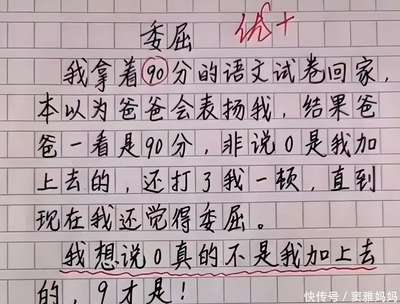 委屈 优+
我拿着90分的语文试卷回家,
本以为爸爸会表扬我,结果爸
爸一看是90分,非说0是我加
上去的,还打了我一顿,直到
现在我还觉得委屈。
我想说0真的不是我加上去
的,9才是!
快传号/霏雅妈妈